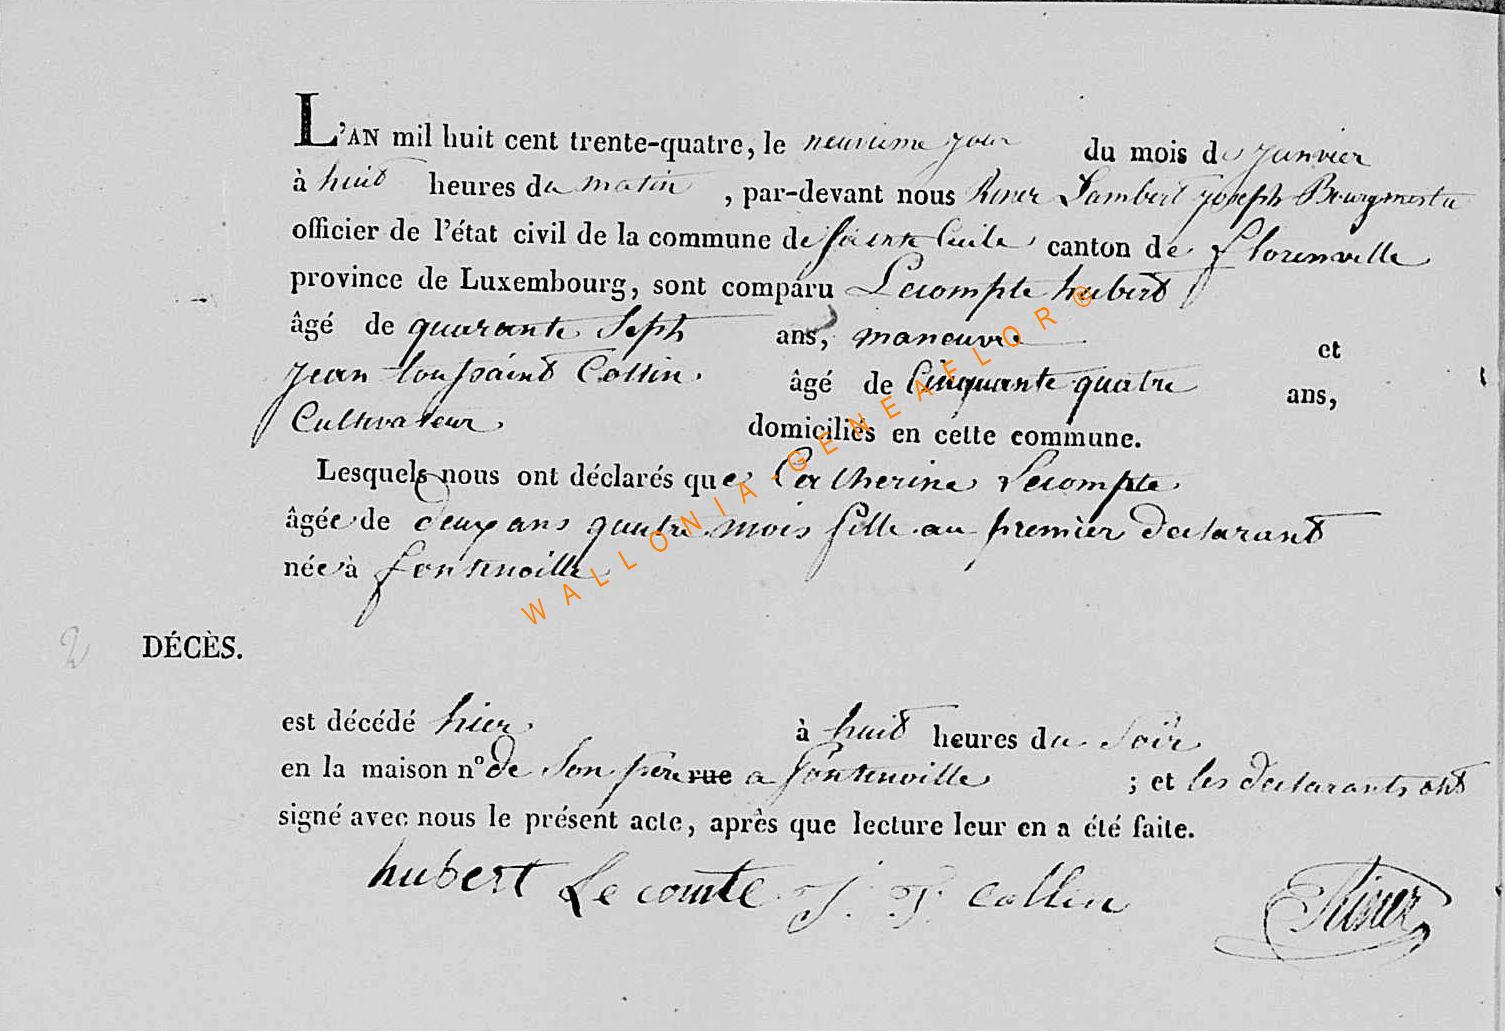 L'AN mil huit cent trente-quatre, le neuvieme jour du mois de janvier
à huit heures du matin, par-devant nous Riner Lambert joseph Bourgmestre
officier de l'état civil de la commune de sainte Cecile canton de florenville
province de Luxembourg, sont comparu Lecompte hubert
âgé de quarante Seph ans, maneuvre et
jean toussaint Collin âgé de Cinquante quatre ans,
Cultivateur domiciliés en cette commune.
Lesquels nous ont déclarés que Catherine Lecompte
âgée de deux ans quatre mois fille au premier declarant
née à fontenoille
2 DÉCÈS.
est décédé hier à huit heures du Soir
en la maison n° de Son pere rue a fontenoille ; et les declarants ont
signé avec nous le présent acte, après que lecture leur en a été faite.
hubert Le comte J. T. Collin Riner
WALLONIA-GENEAFLOR®